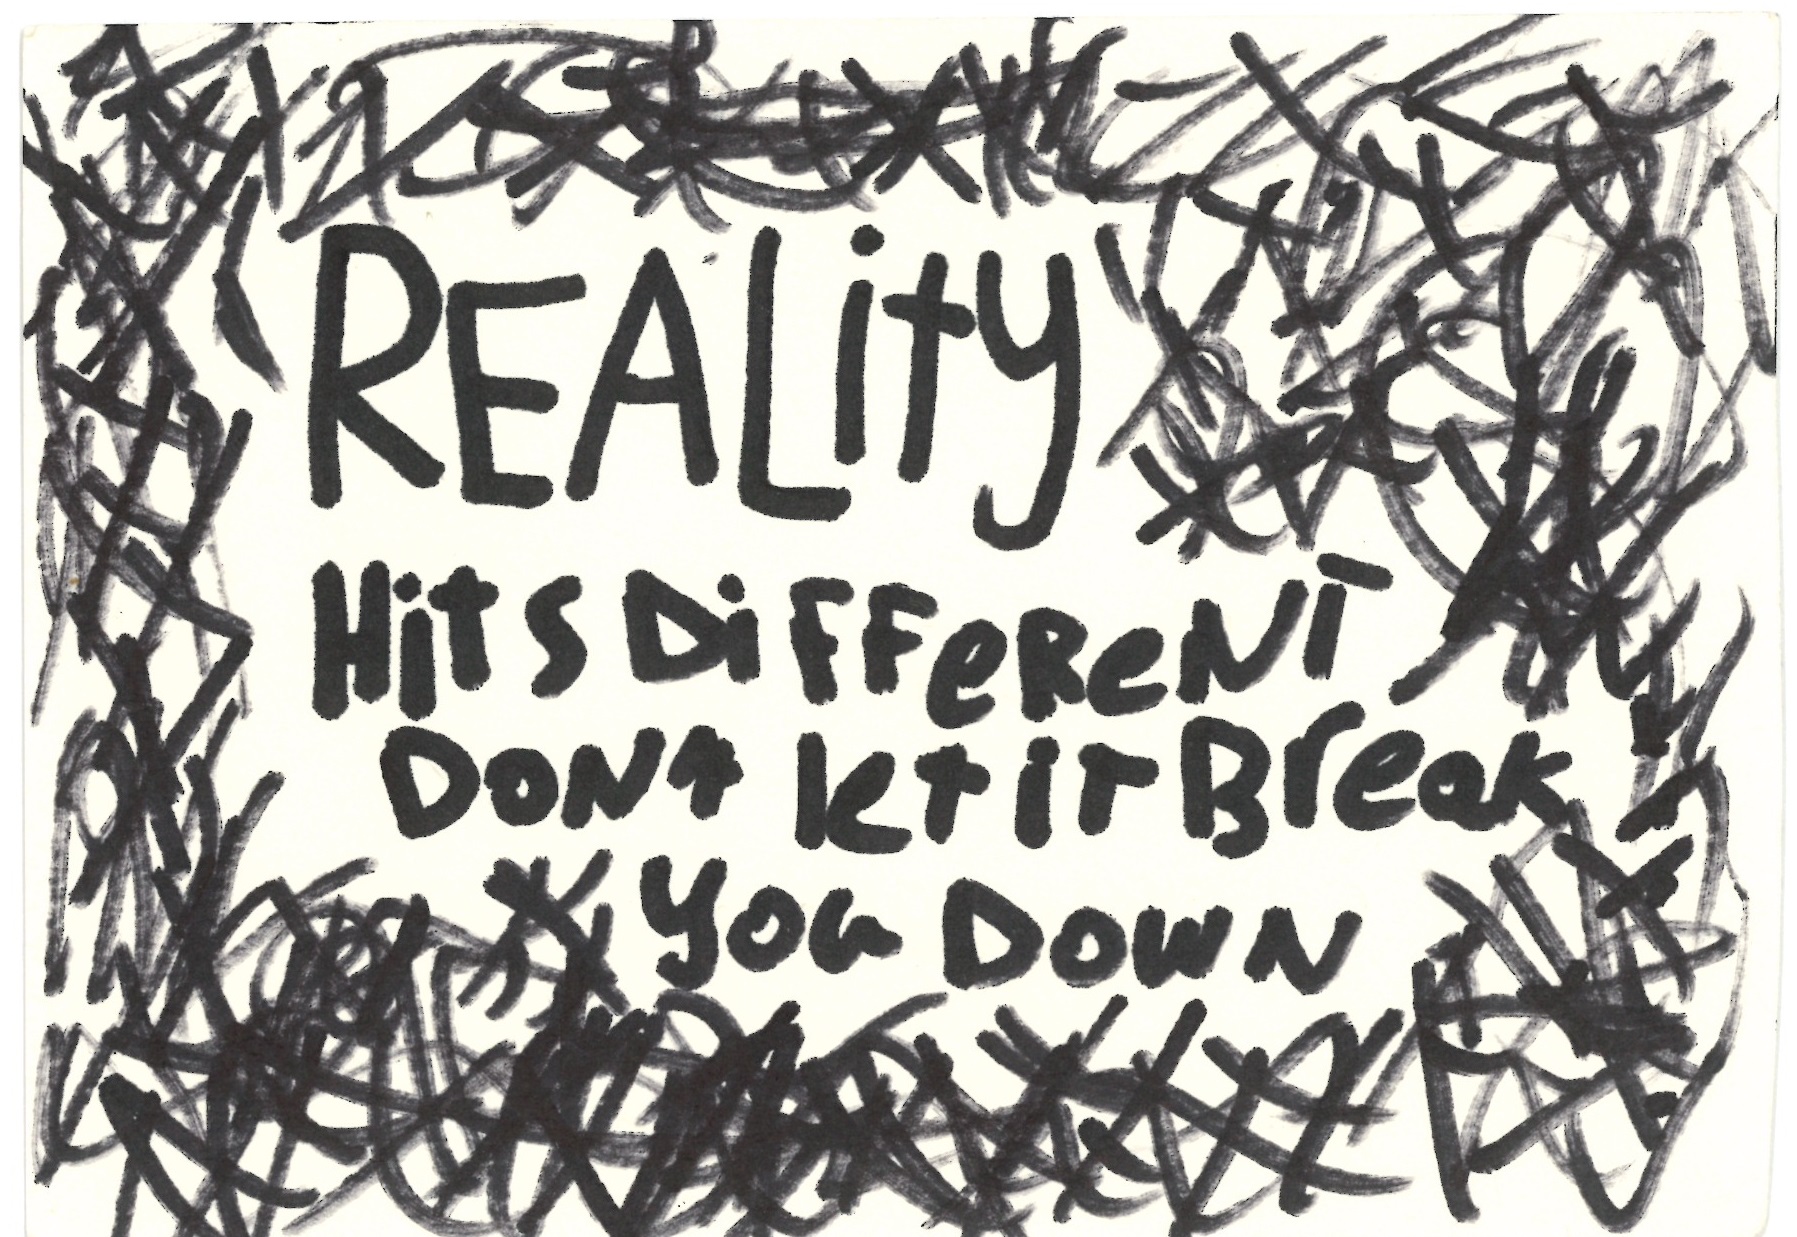 REALity
Hits DiFFeReNT
DONt let it Break
you DOWN